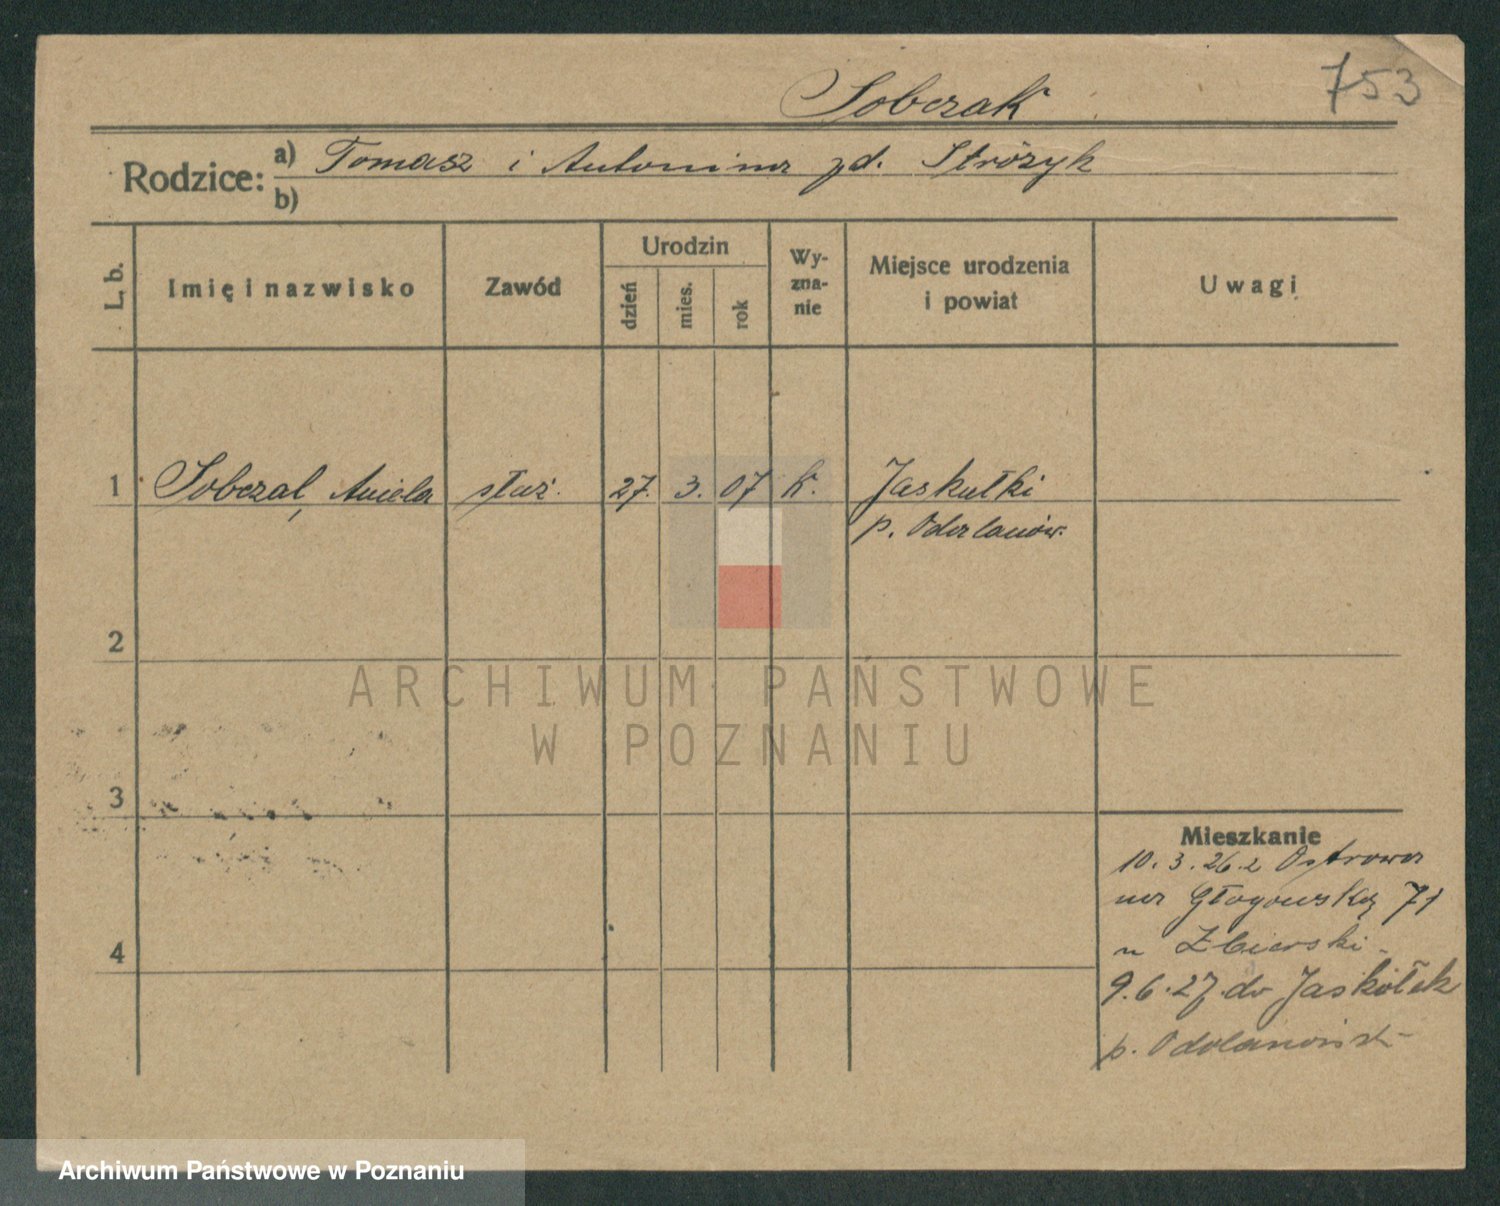 753
Sobczak
Rodzice: a) Tomasz i Antonina zd. Stróżyk
b)
L. b. Imię i nazwisko Zawód Urodzin dzień mies. rok Wy-zna-nie Miejsce urodzenia i powiat Uwagi
1 Sobczak, Aniela służ. 27. 3. 07 K. Jaskułki
p. Odolanów.
2
ARCHIWUM PAŃSTWOWE
W POZNANIU
3
Mieszkanie
10.3.26 z Ostrowa
na Głogowską 71
4
u Zbierski
9.6.27. do Jaskółek
p. Odolanowsk
Archiwum Państwowe w Poznaniu